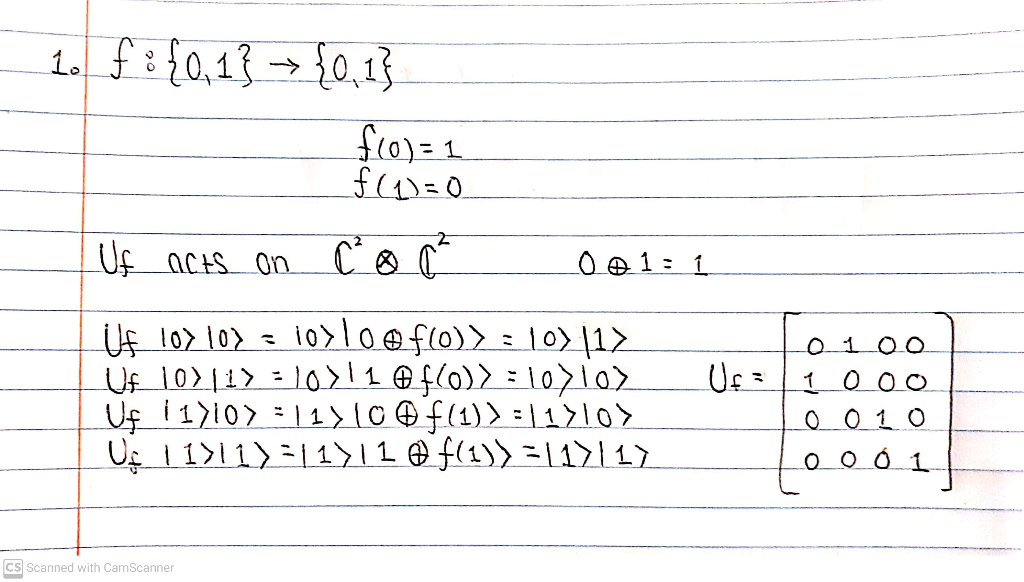 1. f : {0,1} → {0,1}
f(0) = 1
f(1) = 0
Uf acts on ℂ² ⊗ ℂ² 0 ⊕ 1 = 1
Uf |0⟩|0⟩ = |0⟩|0 ⊕ f(0)⟩ = |0⟩|1⟩
Uf |0⟩|1⟩ = |0⟩|1 ⊕ f(0)⟩ = |0⟩|0⟩
Uf |1⟩|0⟩ = |1⟩|0 ⊕ f(1)⟩ = |1⟩|0⟩
Uf |1⟩|1⟩ = |1⟩|1 ⊕ f(1)⟩ = |1⟩|1⟩
Uf = [
0 1 0 0
1 0 0 0
0 0 1 0
0 0 0 1
]
CS Scanned with CamScanner